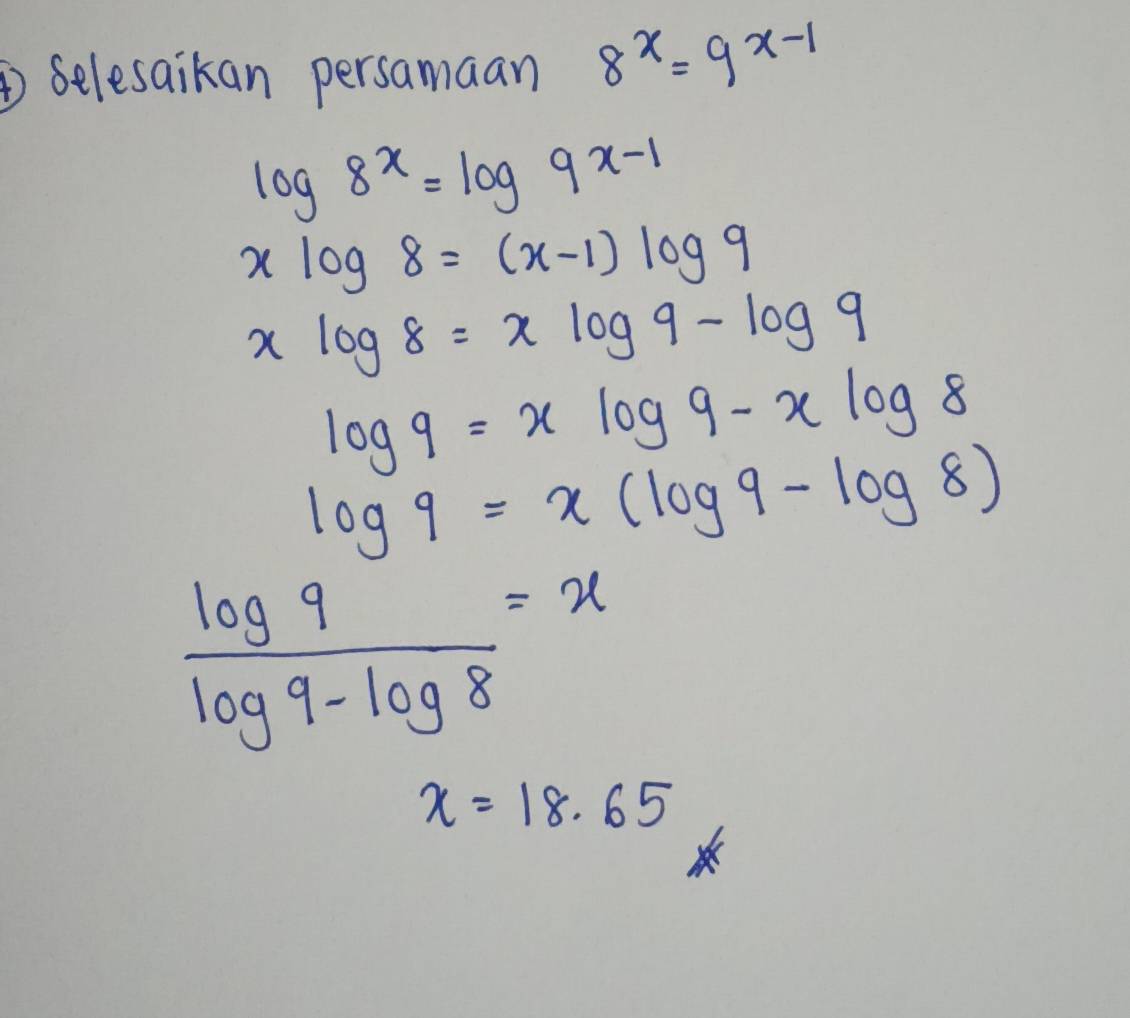 Selesaikan persamaan 8ˣ = 9ˣ⁻¹
log 8ˣ = log 9ˣ⁻¹
x log 8 = (x-1) log 9
x log 8 = x log 9 - log 9
log 9 = x log 9 - x log 8
log 9 = x (log 9 - log 8)
log 9 = x
log 9 - log 8
x = 18.65